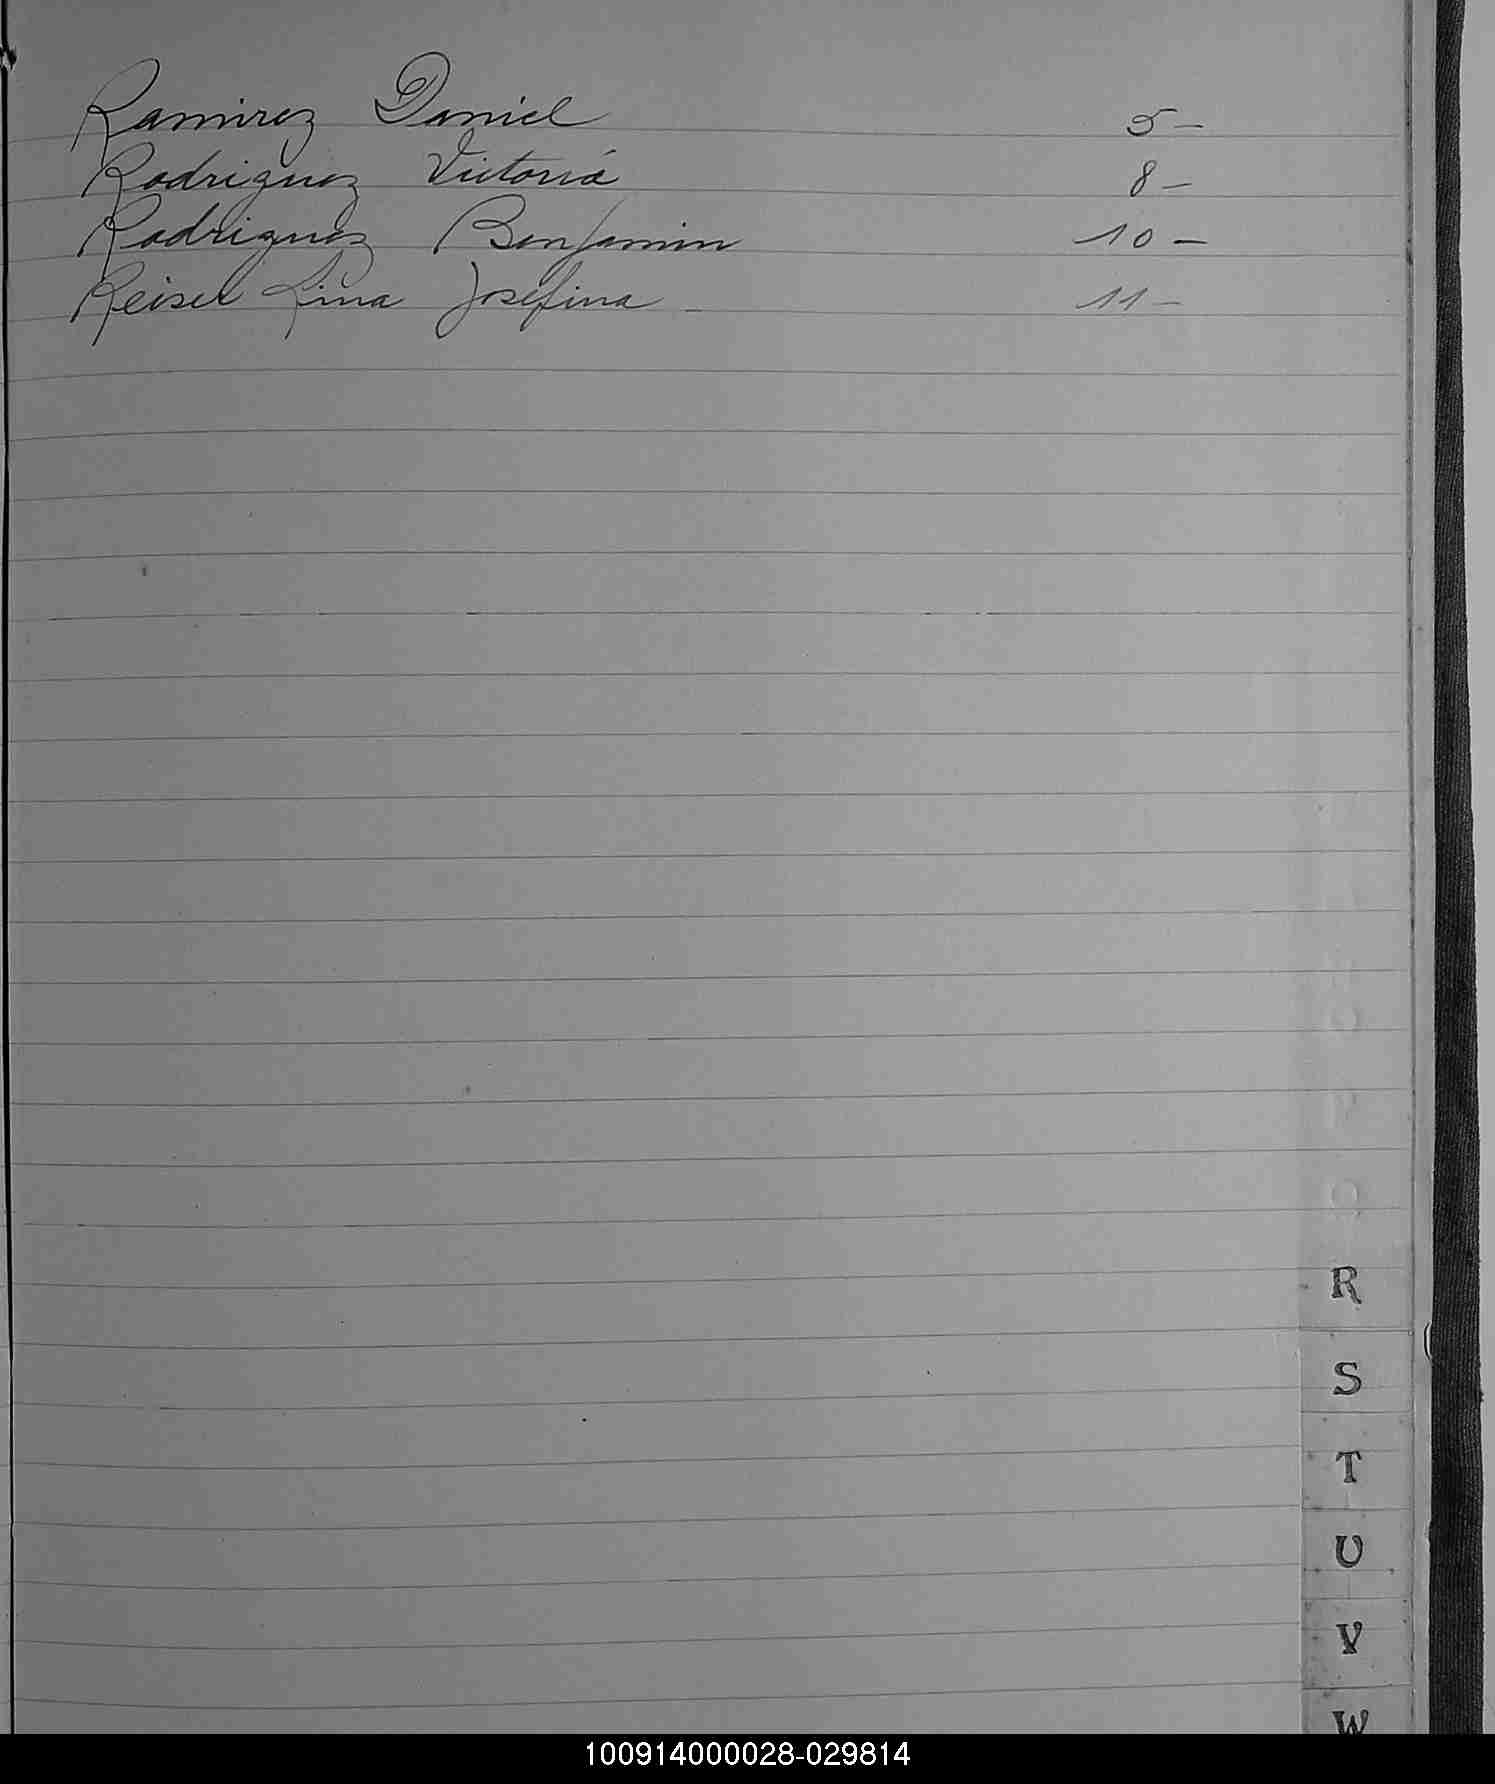 Ramirez Daniel 5 -
Rodriguez Victoria 8 -
Rodriguez Benjamin 10 -
Reisel Lina Josefina - 11 -
R
S
T
U
V
W
100914000028-029814